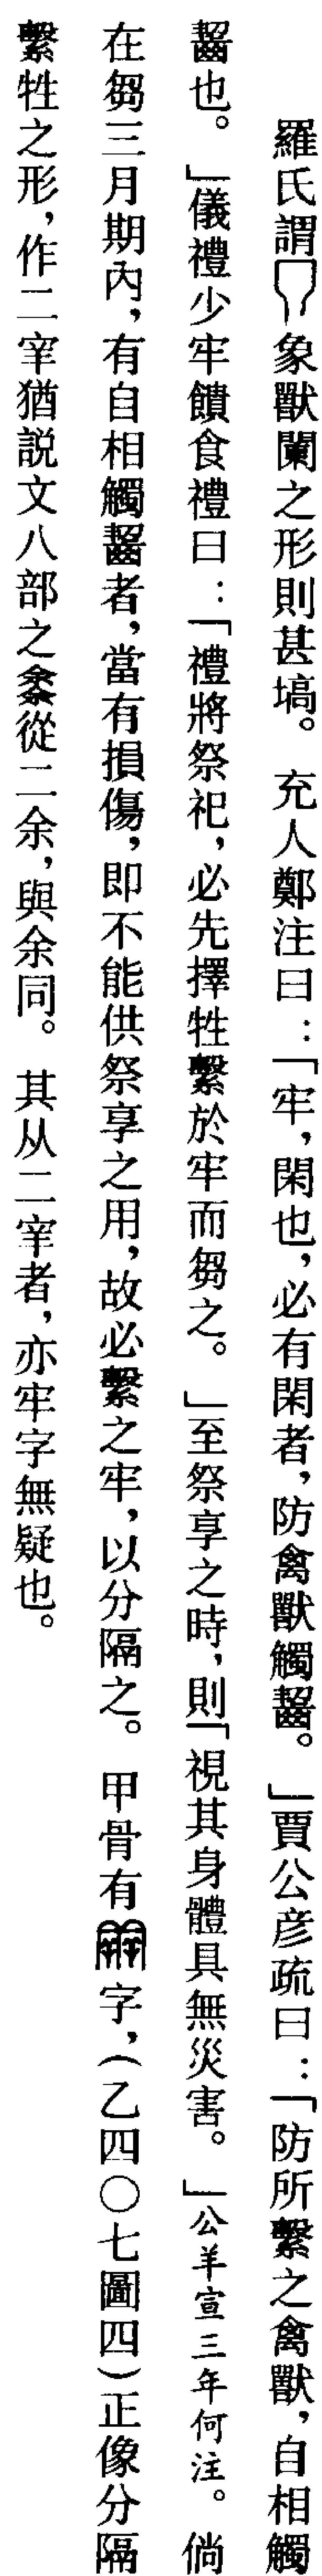 羅氏謂象獸闌之形則甚塙。充人鄭注曰：「牢，閑也，必有閑者，防禽獸觸齧。」賈公彦疏曰：「防所繫之禽獸，自相觸
齧也。」儀禮少牢饋食禮曰：「禮將祭祀，必先擇牲繫於牢而芻之。」至祭享之時，則「視其身體具無災害。」公羊宣三年何注。倘
在芻三月期內，有自相觸齧者，當有損傷，即不能供祭享之用，故必繫之牢，以分隔之。甲骨有字，（乙四〇七圖四）正像分隔
繫牲之形，作二宰猶説文八部之䍫從二余，與余同。其从二宰者，亦牢字無疑也。